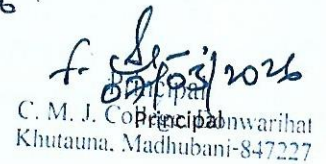 f.
02/03/2026
Principal
C. M. J. College Donwarihat
Principal
Khutauna, Madhubani-847227